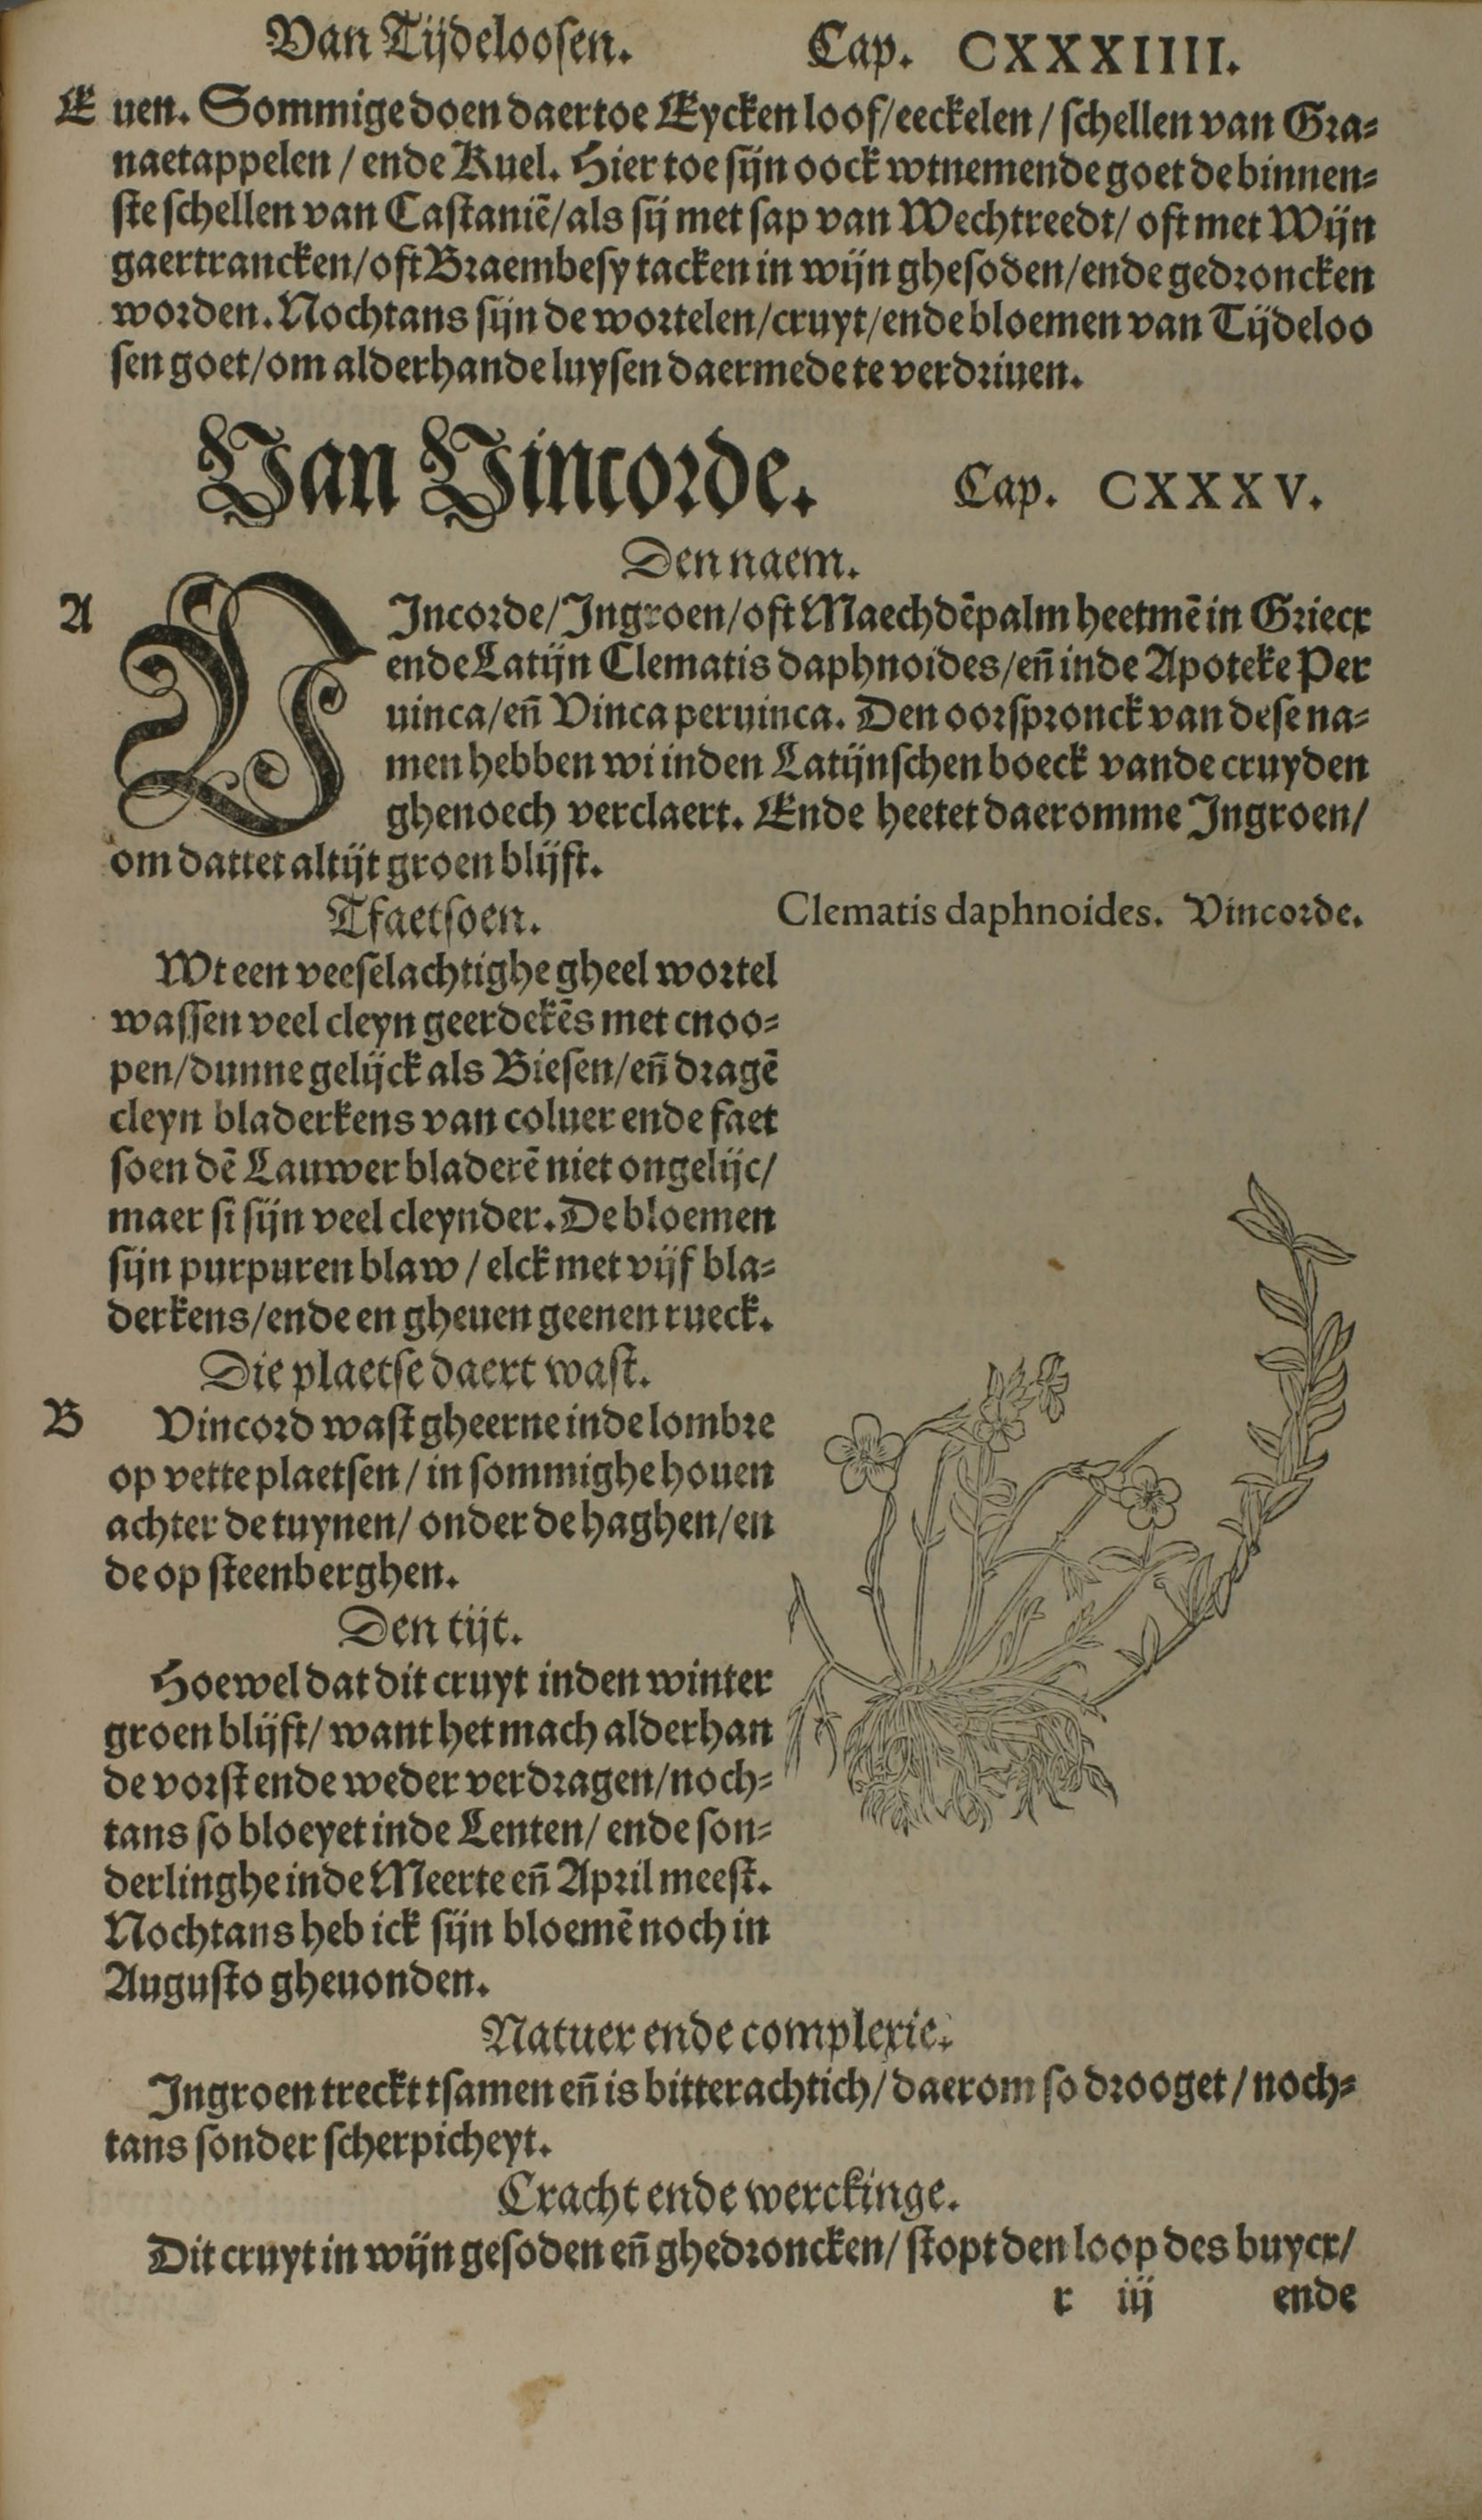 Van Tijdeloosen. Cap. CXXXIIII.
E uen. Sommige doen daer toe Eycken loof/eeckelen / schellen van Gra-
naetappelen / ende Ruel. Hier toe sijn oock wtnemende goet de binnen-
ste schellen van Castaniē/als sij met sap van Wechtreedt/ oft met Wijn
gaertrancken/oft Braembesy tacken in wijn ghesoden/ende gedroncken
worden. Nochtans sijn de wortelen/cruyt/ende bloemen van Tijdeloo
sen goet/om alderhande luysen daermede te verdriuen.
Van Vincorde. Cap. CXXXV.
Den naem.
A VIncorde/Ingroen/oft Maechdēpalm heetmē in Griecx
ende Latijn Clematis daphnoides/eñ inde Apoteke Per
uinca/eñ Vinca peruinca. Den oorspronck van dese na-
men hebben wi inden Latijnschen boeck vande cruyden
ghenoech verclaert. Ende heetet daeromme Ingroen/
om dattet altijt groen blijft.
Tfaetsoen.
Clematis daphnoides. Vincorde.
Wt een veeselachtighe gheel wortel
wassen veel cleyn geerdekēs met cnoo-
pen/dunne gelijck als Biesen/eñ dragē
cleyn bladerkens van coluer ende faet
soen dē Lauwer bladerē niet ongelijc/
maer si sijn veel cleynder. De bloemen
sijn purpuren blaw / elck met vijf bla-
derkens/ende en gheuen geenen rueck.
Die plaetse daert wast.
B Vincord wast gheerne inde lombre
op vette plaetsen / in sommighe houen
achter de tuynen/ onder de haghen/en
de op steenberghen.
Den tijt.
Hoewel dat dit cruyt inden winter
groen blijft/ want het mach alderhan
de vorst ende weder verdragen/noch-
tans so bloeyet inde Lenten/ ende son-
derlinghe inde Meerte eñ April meest.
Nochtans heb ick sijn bloemē noch in
Augusto gheuonden.
Natuer ende complexie.
Ingroen treckt tsamen eñ is bitterachtich/daerom so drooget / noch-
tans sonder scherpicheyt.
Cracht ende werckinge.
Dit cruyt in wijn gesoden eñ ghedroncken/ stopt den loop des buycx/
r iij ende